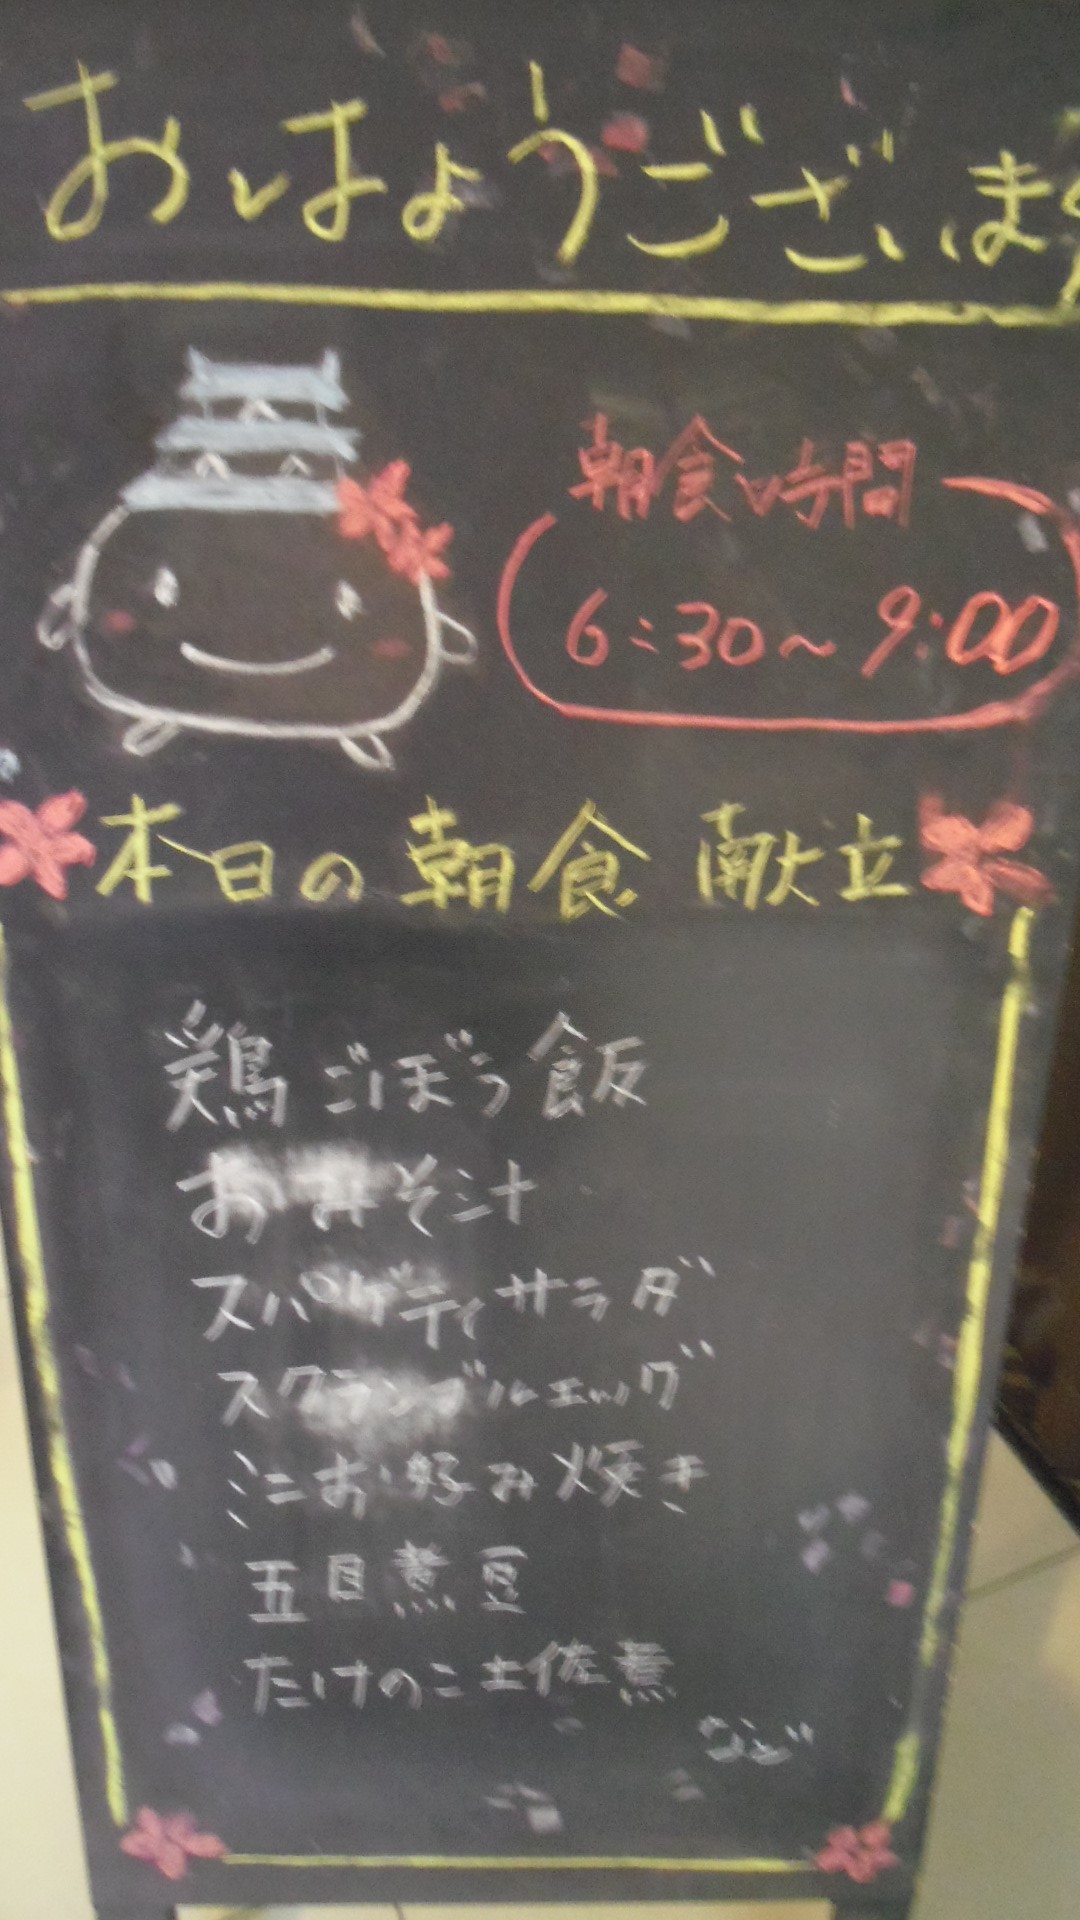 おはようございます
朝食時間
6:30〜9:00
本日の朝食 献立
鶏ごぼう飯
おみそ汁
スパゲティサラダ
スクランブルエッグ
ミニお好み焼き
五目煮豆
たけのこ土佐煮